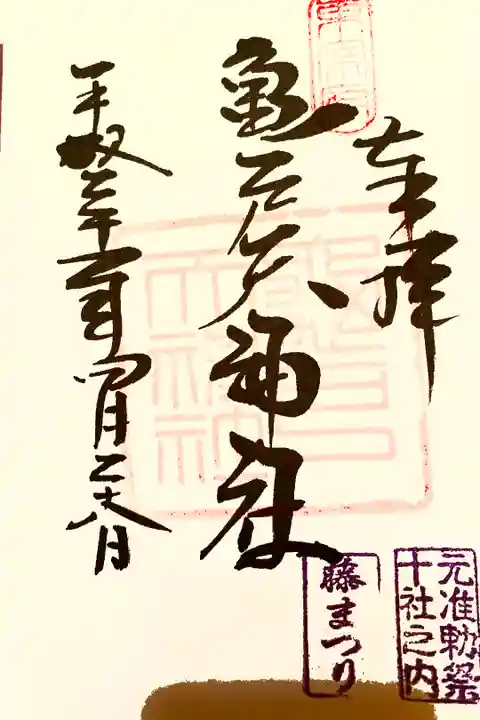 東宰府
奉拝
亀戸天神社
平成二十年四月二十八日
元准勅祭
十社之内
藤まつり